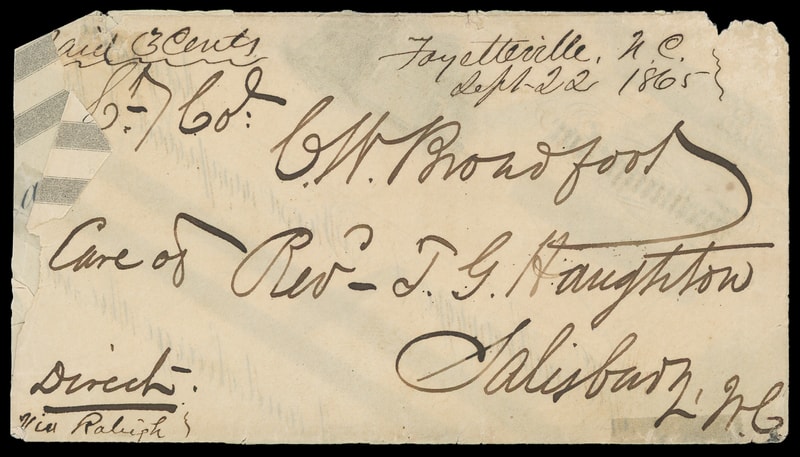 Paid 3 Cents
Fayetteville, N.C.
Sept 22 1865
Lt Col:
C. W. Broadfoot
Care of Revd T. G. Haughton
Salisbury, N.C
Direct.
Via Raleigh